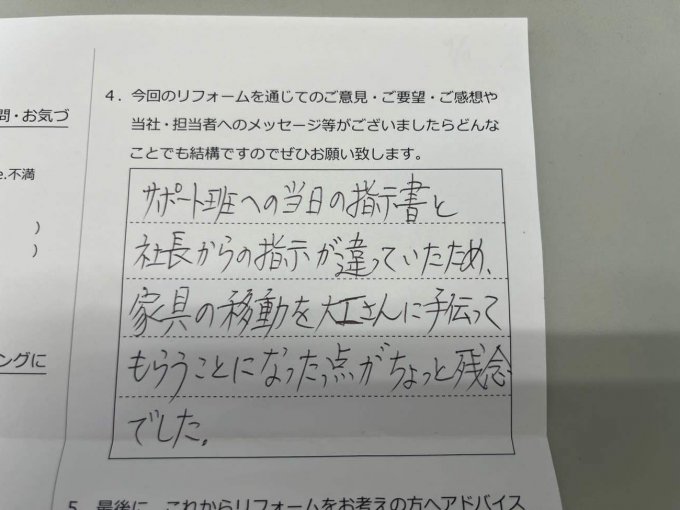 問・お気づ
e.不満
)
)
ングに
4．今回のリフォームを通じてのご意見・ご要望・ご感想や
当社・担当者へのメッセージ等がございましたらどんな
ことでも結構ですのでぜひお願い致します。
サポート班への当日の指示書と
社長からの指示が違っていたため、
家具の移動を大工さんに手伝って
もらうことになったっ点がちょっと残念
でした。
5．最後に、これからリフォームをお考えの方へアドバイス